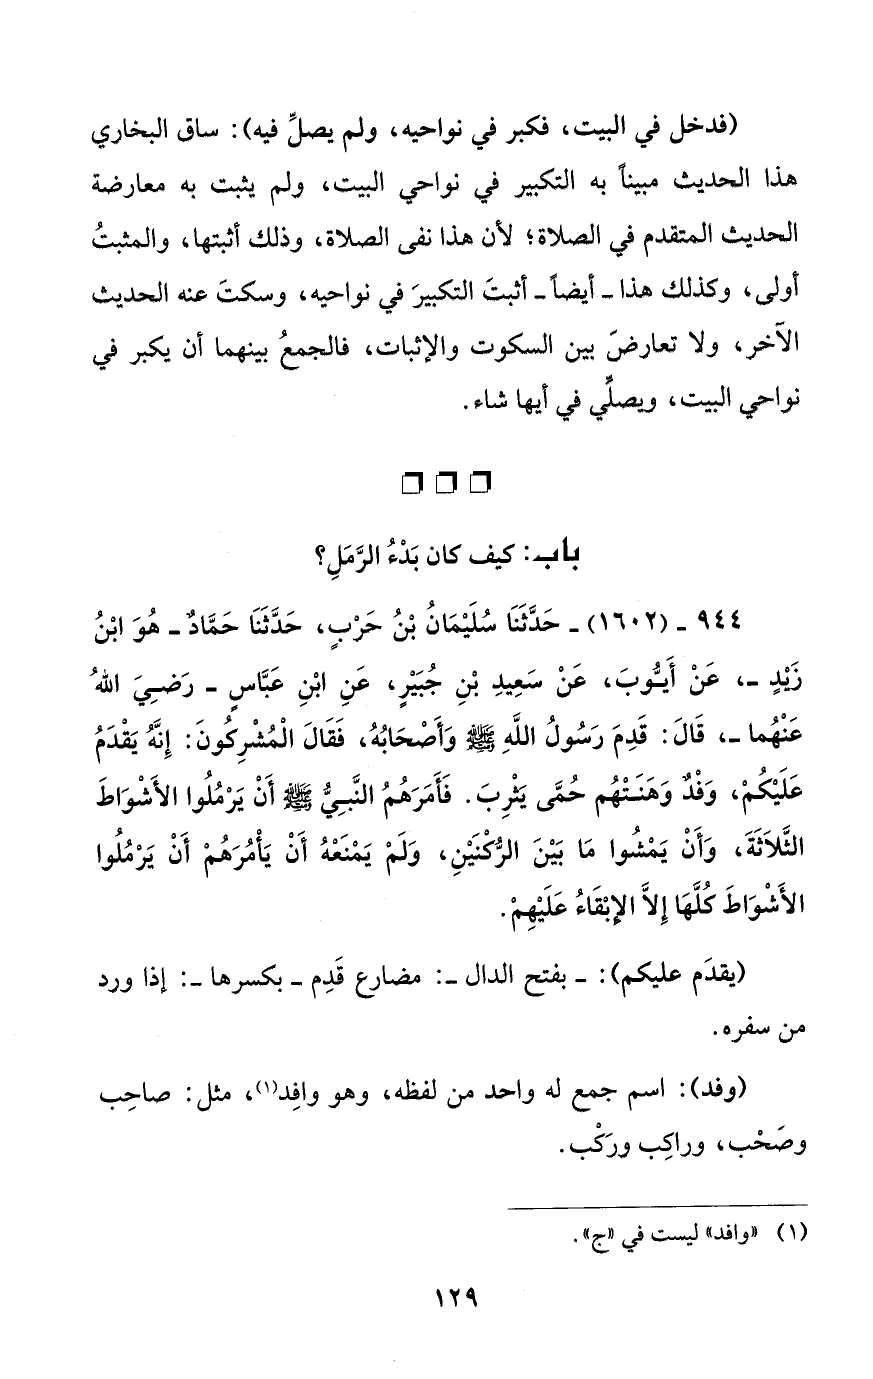 (فدخل في البيت، فكبر في نواحيه، ولم يصلِّ فيه): ساق البخاري
هذا الحديث مبيناً به التكبير في نواحي البيت، ولم يثبت به معارضة
الحديث المتقدم في الصلاة؛ لأن هذا نفى الصلاة، وذلك أثبتها، والمثبتُ
أولى، وكذلك هذا ـ أيضاً ـ أثبتَ التكبيرَ في نواحيه، وسكتَ عنه الحديث
الآخر، ولا تعارضَ بين السكوت والإثبات، فالجمعُ بينهما أن يكبر في
نواحي البيت، ويصلِّي في أيها شاء.
❐ ❐ ❐
باب: كيف كان بَدْءُ الرَّمَلِ؟
٩٤٤ ـ (١٦٠٢) ـ حَدَّثَنَا سُلَيْمَانُ بْنُ حَرْبٍ، حَدَّثَنَا حَمَّادٌ ـ هُوَ ابْنُ
زَيْدٍ ـ، عَنْ أَيُّوبَ، عَنْ سَعِيدِ بْنِ جُبَيْرٍ، عَنِ ابْنِ عَبَّاسٍ ـ رَضِيَ اللهُ
عَنْهُما ـ، قَالَ: قَدِمَ رَسُولُ اللَّهِ ﷺ وَأَصْحَابُهُ، فَقَالَ الْمُشْرِكُونَ: إِنَّهُ يَقْدَمُ
عَلَيْكُمْ، وَفْدٌ وَهَنَتْهُم حُمَّى يَثْرِبَ. فَأَمَرَهُمُ النَّبِيُّ ﷺ أَنْ يَرْمُلُوا الأَشْوَاطَ
الثَّلاَثَةَ، وَأَنْ يَمْشُوا مَا بَيْنَ الرُّكْنَيْنِ، وَلَمْ يَمْنَعْهُ أَنْ يَأْمُرَهُمْ أَنْ يَرْمُلُوا
الأَشْوَاطَ كُلَّهَا إِلاَّ الإِبْقَاءُ عَلَيْهِمْ.
(يقدَم عليكم): ـ بفتح الدال ـ: مضارع قَدِم ـ بكسرها ـ: إذا ورد
من سفره.
(وفد): اسم جمع له واحد من لفظه، وهو وافِد(١)، مثل: صاحِب
وصَحْب، وراكِب وركْب.
(١) «وافد» ليست في «ج».
١٢٩